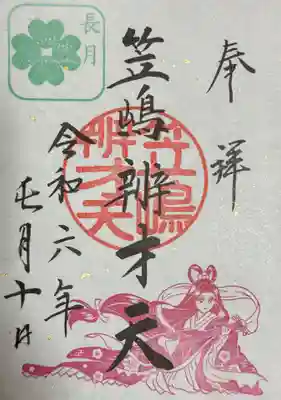 奉拝
笠嶋辨才天
令和六年
長月十日
長月
笠嶋
辨才天